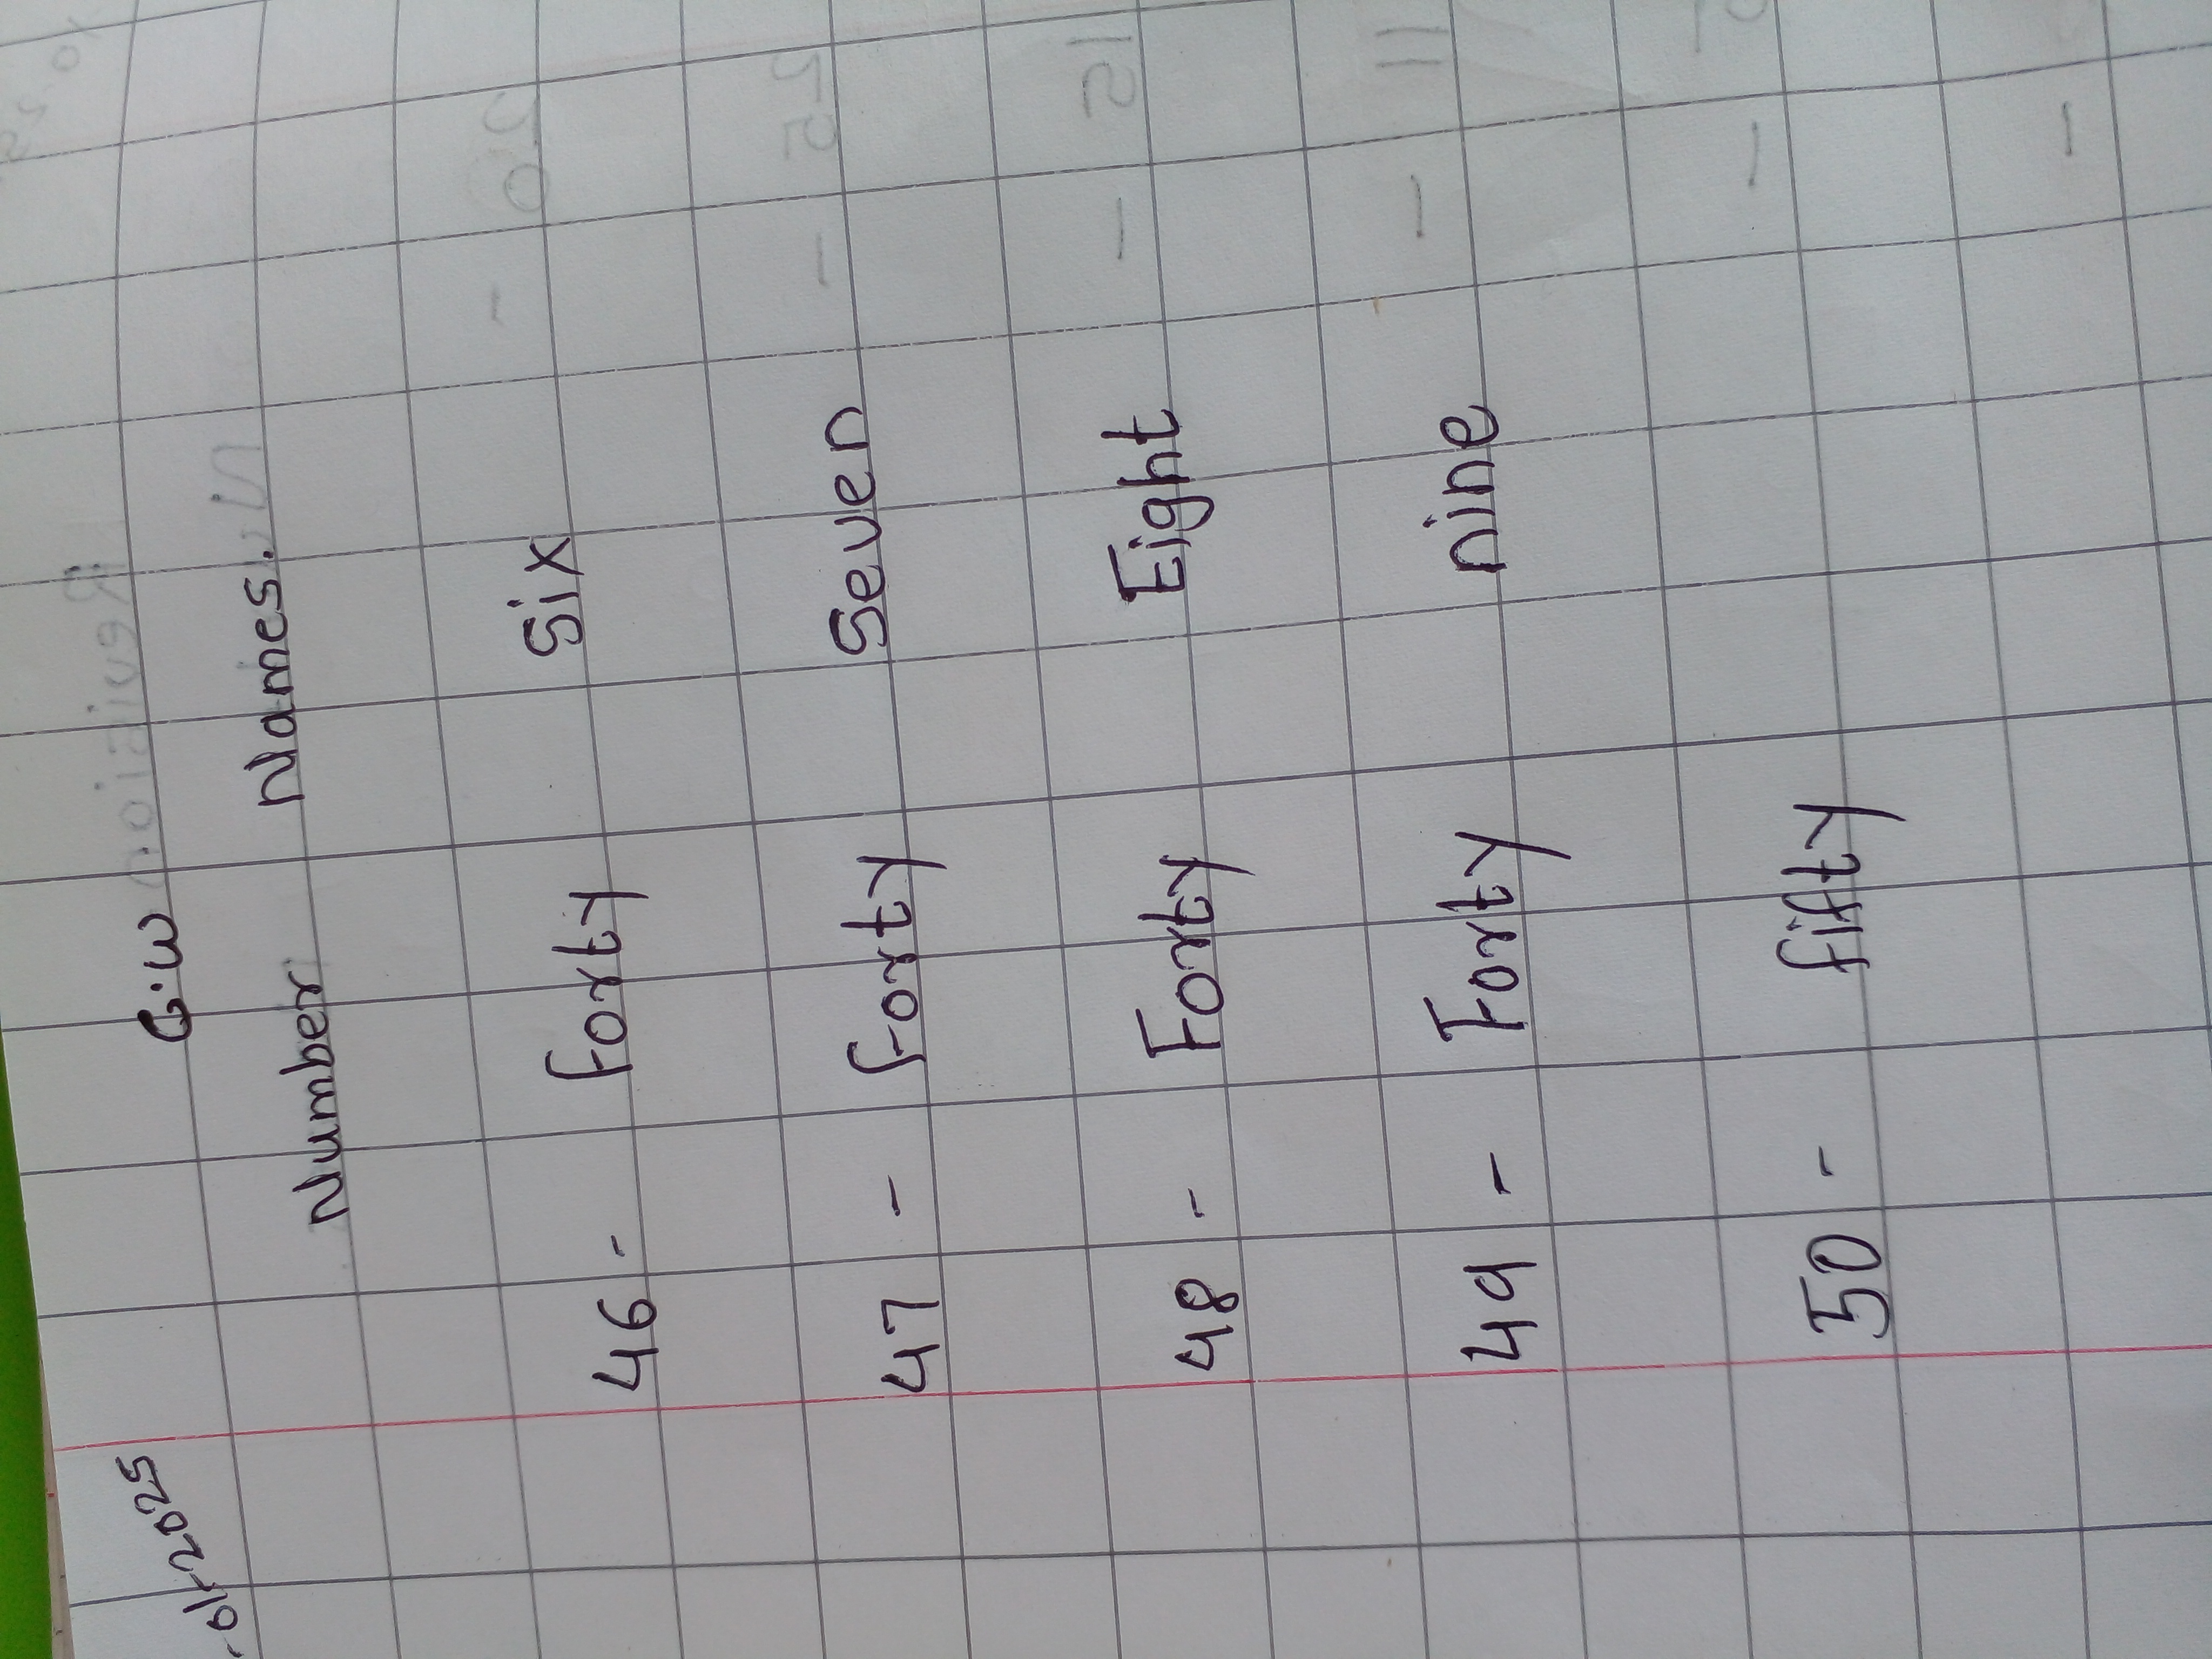 -01-2025
C.W
Number Names.
46 - forty Six
47 - forty Seven
48 - Forty Eight
49 - Forty nine
50 - fifty